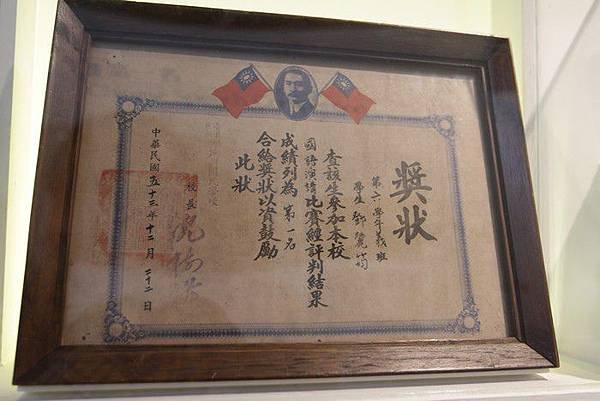 獎狀
第六學年義班
學生 鄧麗筠
查該生參加本校
國語演講比賽經評判結果
成績列為第一名
合給獎狀以資鼓勵
此狀
校長
中華民國五十三年十二月二十二日